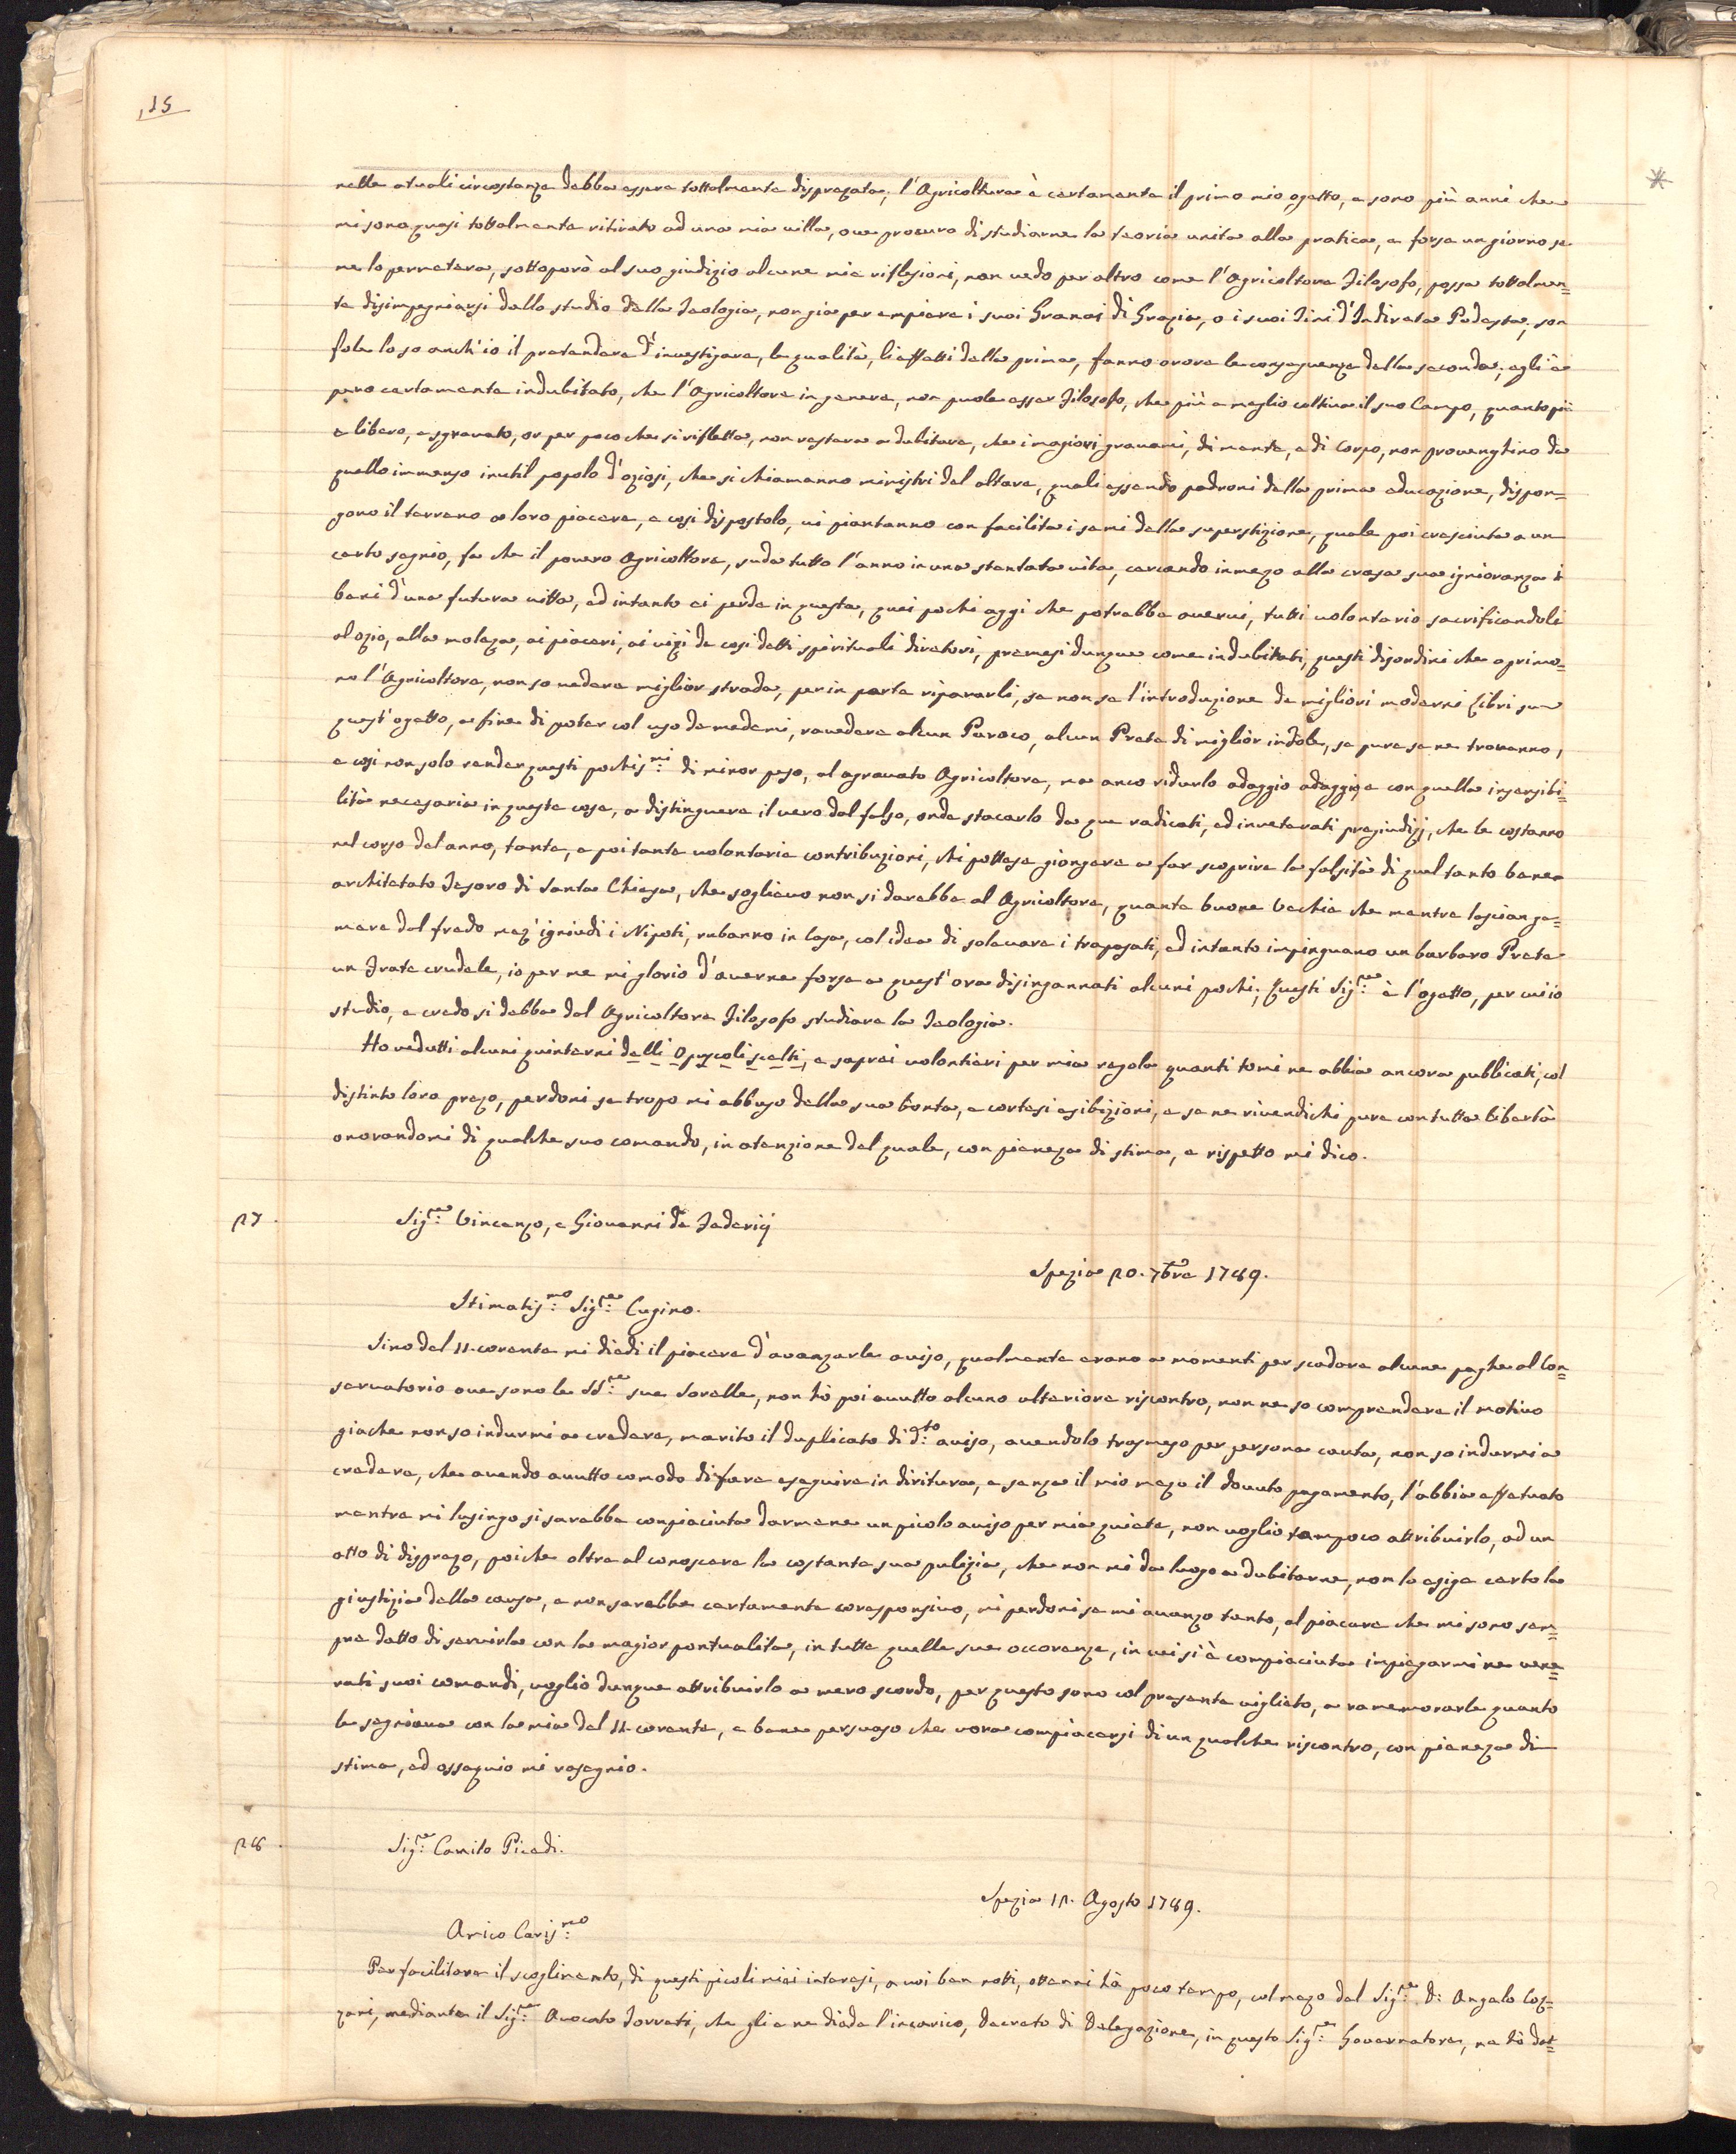 15
nelle atuali circostanze debba essere tottalmente disprezata; l'Agricoltura è certamente il primo mio ogetto, e sono più anni che
mi sono quasi tottalmente ritirato ad una mia villa, ove procuro di studiarne la teoria unita alla pratica, e forse un giorno se
me lo permeterà, sottoporò al suo giudizio alcune mie riflesioni, non vedo per altro come l'Agricoltore Filosofo, possa tottalmen=
te disimpegniarsi dallo studio della Teologia, non già per empiere i suoi Granai di Grazia, o i suoi Tini d'Indireta Podestà, son
fole lo so anch'io il pretendere d'investigare, le qualità, li effetti della prima, fanno orore le conseguenze della seconda; egli è
pero certamente indubitato, che l'Agricoltore in genere, non puole esser Filosofo, che più e meglio coltiva il suo Campo, quanto più
è libero, e sgravato, or per poco che si rifletta, non restara a dubitare, che i magiori gravami, di mente, e di Corpo, non provenghino da
quello immenso inutil popolo d'oziosi, che si chiamanno ministri del altare, quali essendo padroni della prima educazione, dispon=
gono il terreno a loro piacere, e cosi dispostolo, vi piantanno con facilita i semi della superstizione, quale poi cresciuta a un
certo segnio, fa che il povero Agricoltore, suda tutto l'anno in una stentata vita, cercando in mezo alla crasa sua ignioranza i
beni d'una futura vitta, ed intanto ei perde in questa, quei pochi aggi che potrebbe avervi, tutti volontario sacrificandoli
al ozio, alla moleza, ai piaceri, ai vizi de cosi detti spirituali diretori, premesi dunque come indubitati, questi disordini che oprimo=
no l'Agricoltore, non so vedere miglior strada, per in parte ripararli, se non se l'introduzione de migliori moderni Libri su
quest'ogetto, a fine di poter col uso de medemi, ravedere alcun Paroco, alcun Prete di miglior indole, se pure se ne trovanno,
e cosi non solo render questi pochis:mi di minor peso, al agravato Agricoltore, ma anco ridurlo adaggio adaggio e con quella insensibi=
lità necesaria in queste cose, a distinguere il vero dal falso, onde stacarlo da que radicati, ed inveterati pregiudizj, che le costanno
nel corso del anno, tante, e poi tante volontarie contribuzioni, chi pottese giongere a far scoprire la falsità di quel tanto bene
architetato Tesoro di Santa Chiesa, che soglievo non si darebbe al Agricoltore, quante buone Vechie che mentre lascian ge=
mere dal fredo mez'igniudi i Nipoti, rubanno in Casa, col idea di solevare i trapasati, ed intanto impinguano un barbaro Prete
un Frate crudele, io per me mi glorio d'averne forse a quest'ora disingannati alcuni pochi; Questi Sig:re è l'ogetto, per cui io
studio, e credo si debba dal Agricoltore Filosofo studiare la Teologia.
Ho vedutti alcuni quinterni delli Opuscoli scelti, e saprei volontieri per mia regola quanti tomi ne abbia ancora pubblicati, col
distinto loro prezo, perdoni se tropo mi abbuso della sua bonta, e cortesi esibizioni, e se ne rivendichi pure con tutta libertà
onorandomi di qualche suo comando, in atenzione del quale, con pieneza di stima, e rispetto mi dico.
27.
Sig:re Vincenzo, e Giovanni de Federicj
Spezia 20. 7bre 1789.
Stimatis:mo Sig:re Cugino.
Sino del 11. corente mi diedi il piacere d'avanzarle aviso, qualmente erano a momenti per scadere alcune paghe al Con=
servatorio ove sono le SS:re sue Sorelle, non hò poi avutto alcuno ulteriore riscontro, non ne so comprendere il motivo
giache non so indurmi a credere, smarito il duplicato di d:to aviso, avendolo trasmeso per persona cauta, non so indurmi a
credere, che avendo avutto comodo di fare eseguire in diritura, e senza il mio mezo il dovuto pagamento, l'abbia effetuato
mentre mi lusingo si sarebbe conpiaciuta darmene un picolo aviso per mia quiete, non voglio tampoco attribuirlo, ad un
atto di disprezo, poiche oltre al conoscere la costante sua pulizia, che non mi da luogo a dubitarne, non lo esige certo la
giustizia della causa, e non sarebbe certamente coresponsivo, mi perdoni se mi avanzo tanto, al piacere che mi sono sem=
pre datto di servirla con la magior pontualità, in tutte quelle sue occorenze, in cui si è compiaciuta inpiegarmi ne vene=
rati suoi comandi, voglio dunque attribuirlo a mero scordo, per questo sono col presente viglieto, a ramemorarle quanto
le segniava con la mia del 11. corente, e bene persuaso che vora compiacersi di un qualche riscontro, con pieneza di
stima, ed ossequio mi rasegnio.
28.
Sig:re Camilo Picedi.
Spezia 12. Agosto 1789.
Amico Caris:mo
Per facilitare il scoglimento, di questi picoli miei interesi, a voi ben notti, ottenni hà poco tempo, col mezo del Sig:re D: Angelo Coz=
zani, mediante il Sig:re Avocato Torreti, che gli e ne diede l'incarico, Decreto di Delegazione, in questo Sig:re Governatore, ne hò dat=